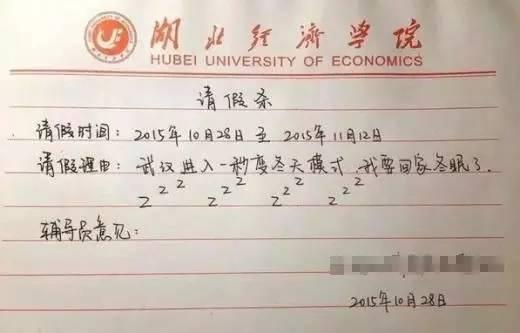 湖北经济学院
HUBEI UNIVERSITY OF ECONOMICS
请假条
请假时间：2015年10月28日至2015年11月12日
请假理由：武汉进入一秒变冬天模式，我要回家冬眠了.
zzz zzz zzz zzz
辅导员意见：
2015年10月28日